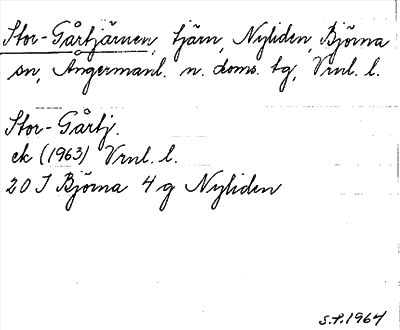 Stor-Gårtjärnen, tjärn, Nyliden, Björna
sn, Ångermanl. n. doms. tg, Vrnl. l.
Stor-Gårtj.
ek (1963) Vrnl. l.
20 J Björna 4 g Nyliden
S.P. 1964